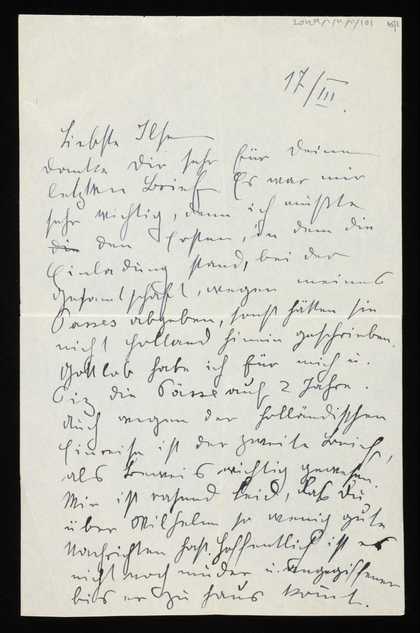 17/III.
Liebste Ilse
danke Dir sehr für Deinen
letzten Brief. Es war mir
sehr wichtig, denn ich mußte
die den Ersten, in dem die
Einladung stand, bei der
Gesandtschaft, wegen meines
Passes abgeben, sonst hätten sie
nicht Holland hinein geschrieben.
Gottlob habe ich für mich u.
die Pässe auf 2 Jahre.
Auch wegen der holländischen
Einreise ist der zweite Brief,
als Beweis wichtig gewesen.
Mir ist rasend leid, daß Du
über Wilhelm so wenig gute
Nachrichten hast. Hoffentlich ist es
nicht noch müder u. angegriffener
bis er zu Haus kommt.